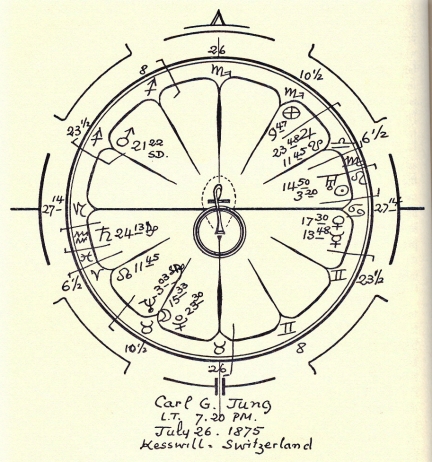 26
8
♐
♏
♏
10½
23½
♐
♂ 21 22
S.D.
⊕
9 47
23 48 ♃
11 45 ☋
♎
6½
♍
♌
14 50 ♅
3 20 ☉
27 14
♑
♋
27 14
♒
♄ 24 13
17 30 ♀
13 48 ☿
♓
♈
6½
☊ 11 45
♆ 3 03
15 33 ☽
23 30
♊
23½
♉
♊
10½
♉
8
26
Carl G. Jung
L.T. 7.20 PM.
July 26. 1875
Kesswill - Switzerland